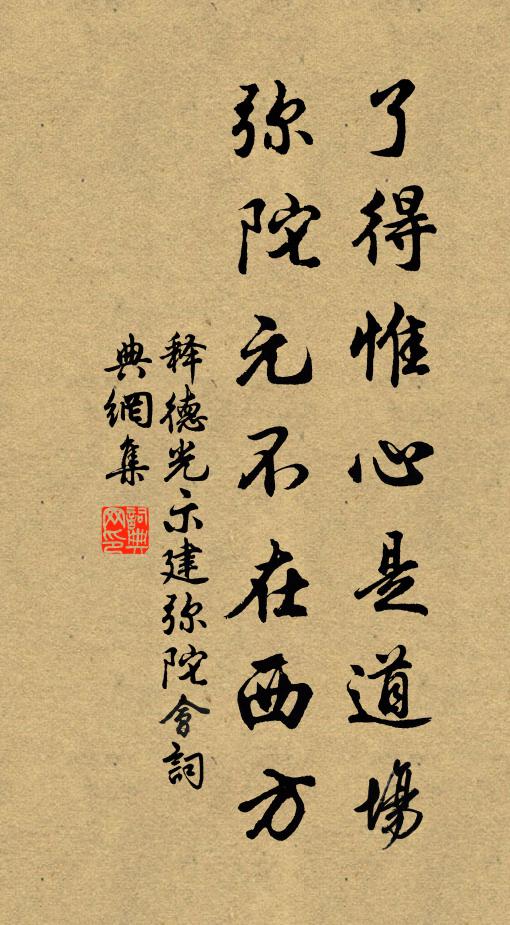 了得惟心是道場
弥陀元不在西方
释德光示建弥陀會詞
典網集
詞典
网印